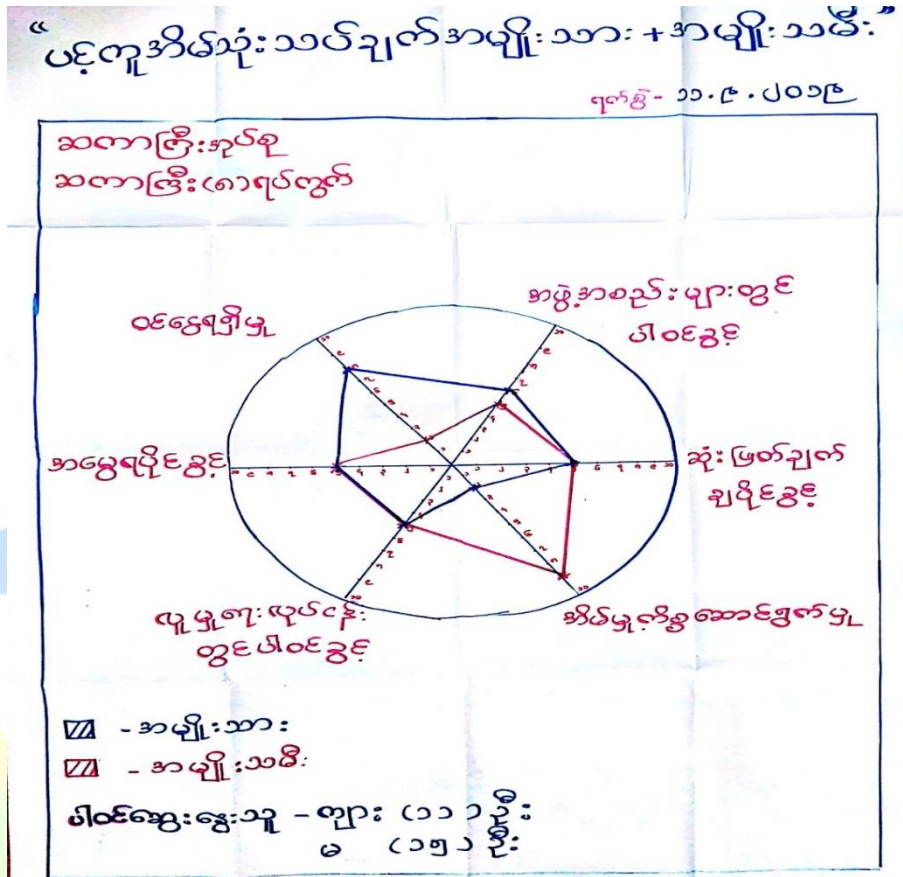 “ပင့်ကူအိမ်သုံးသပ်ချက်အမျိုးသား+အမျိုးသမီး”
ရက်စွဲ- ၁၁.၉.၂၀၁၉
ဆကာကြီးအုပ်စု
ဆကာကြီး(၈)ရပ်ကွက်
ဝင်ငွေရရှိမှု
အဖွဲ့အစည်းများတွင်
ပါဝင်ခွင့်
အမွေရပိုင်ခွင့်
ဆုံးဖြတ်ချက်
ချပိုင်ခွင့်
လူမှုရေးလုပ်ငန်း
တွင်ပါဝင်ခွင့်
အိမ်မှုကိစ္စဆောင်ရွက်မှု
- အမျိုးသား
- အမျိုးသမီး
ပါဝင်ဆွေးနွေးသူ - ကျား (၁၁)ဦး
မ (၁၅)ဦး